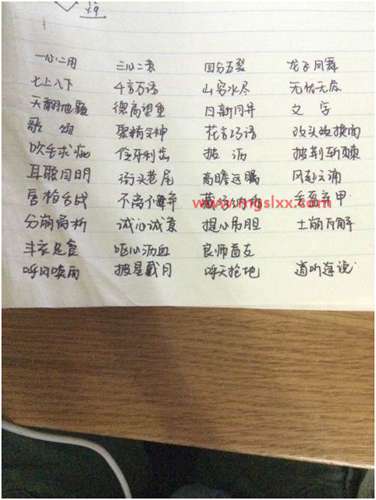 一心二用 三心二意 四分五裂 龙飞凤舞
七上八下 千言万语 山穷水尽 无忧无虑
天翻地覆 德高望重 日新月异 文字
歌颂 聚精会神 花言巧语 改头换面
吹毛求疵 伶牙利齿 披沥 披荆斩棘
耳聪目明 街头巷尾 高瞻远瞩 风起云涌
唇枪舌战 www.yngslxx.com
分崩离析 诚心诚意 提心吊胆 土崩瓦解
丰衣足食 呕心沥血 良师益友
呼风唤雨 披星戴月 呼天抢地 道听途说